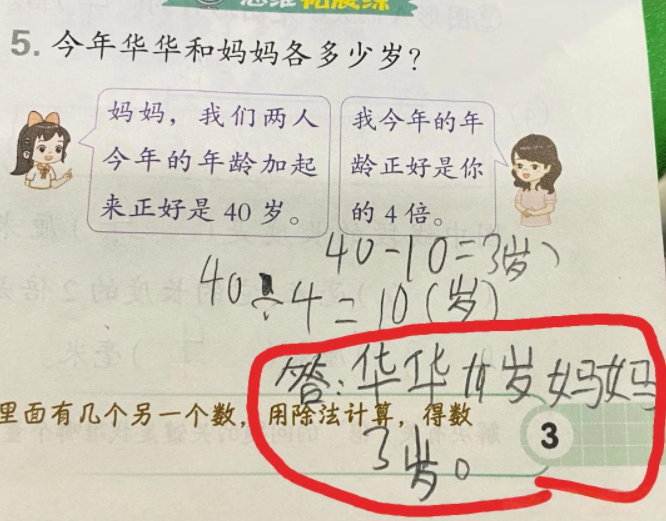 思维拓展练
5. 今年华华和妈妈各多少岁?
妈妈，我们两人
今年的年龄加起
来正好是 40 岁。
我今年的年
龄正好是你
的 4 倍。
40-10=3岁)
40÷4=10(岁)
答:华华 岁妈妈
3岁。
里面有几个另一个数，用除法计算，得数
3